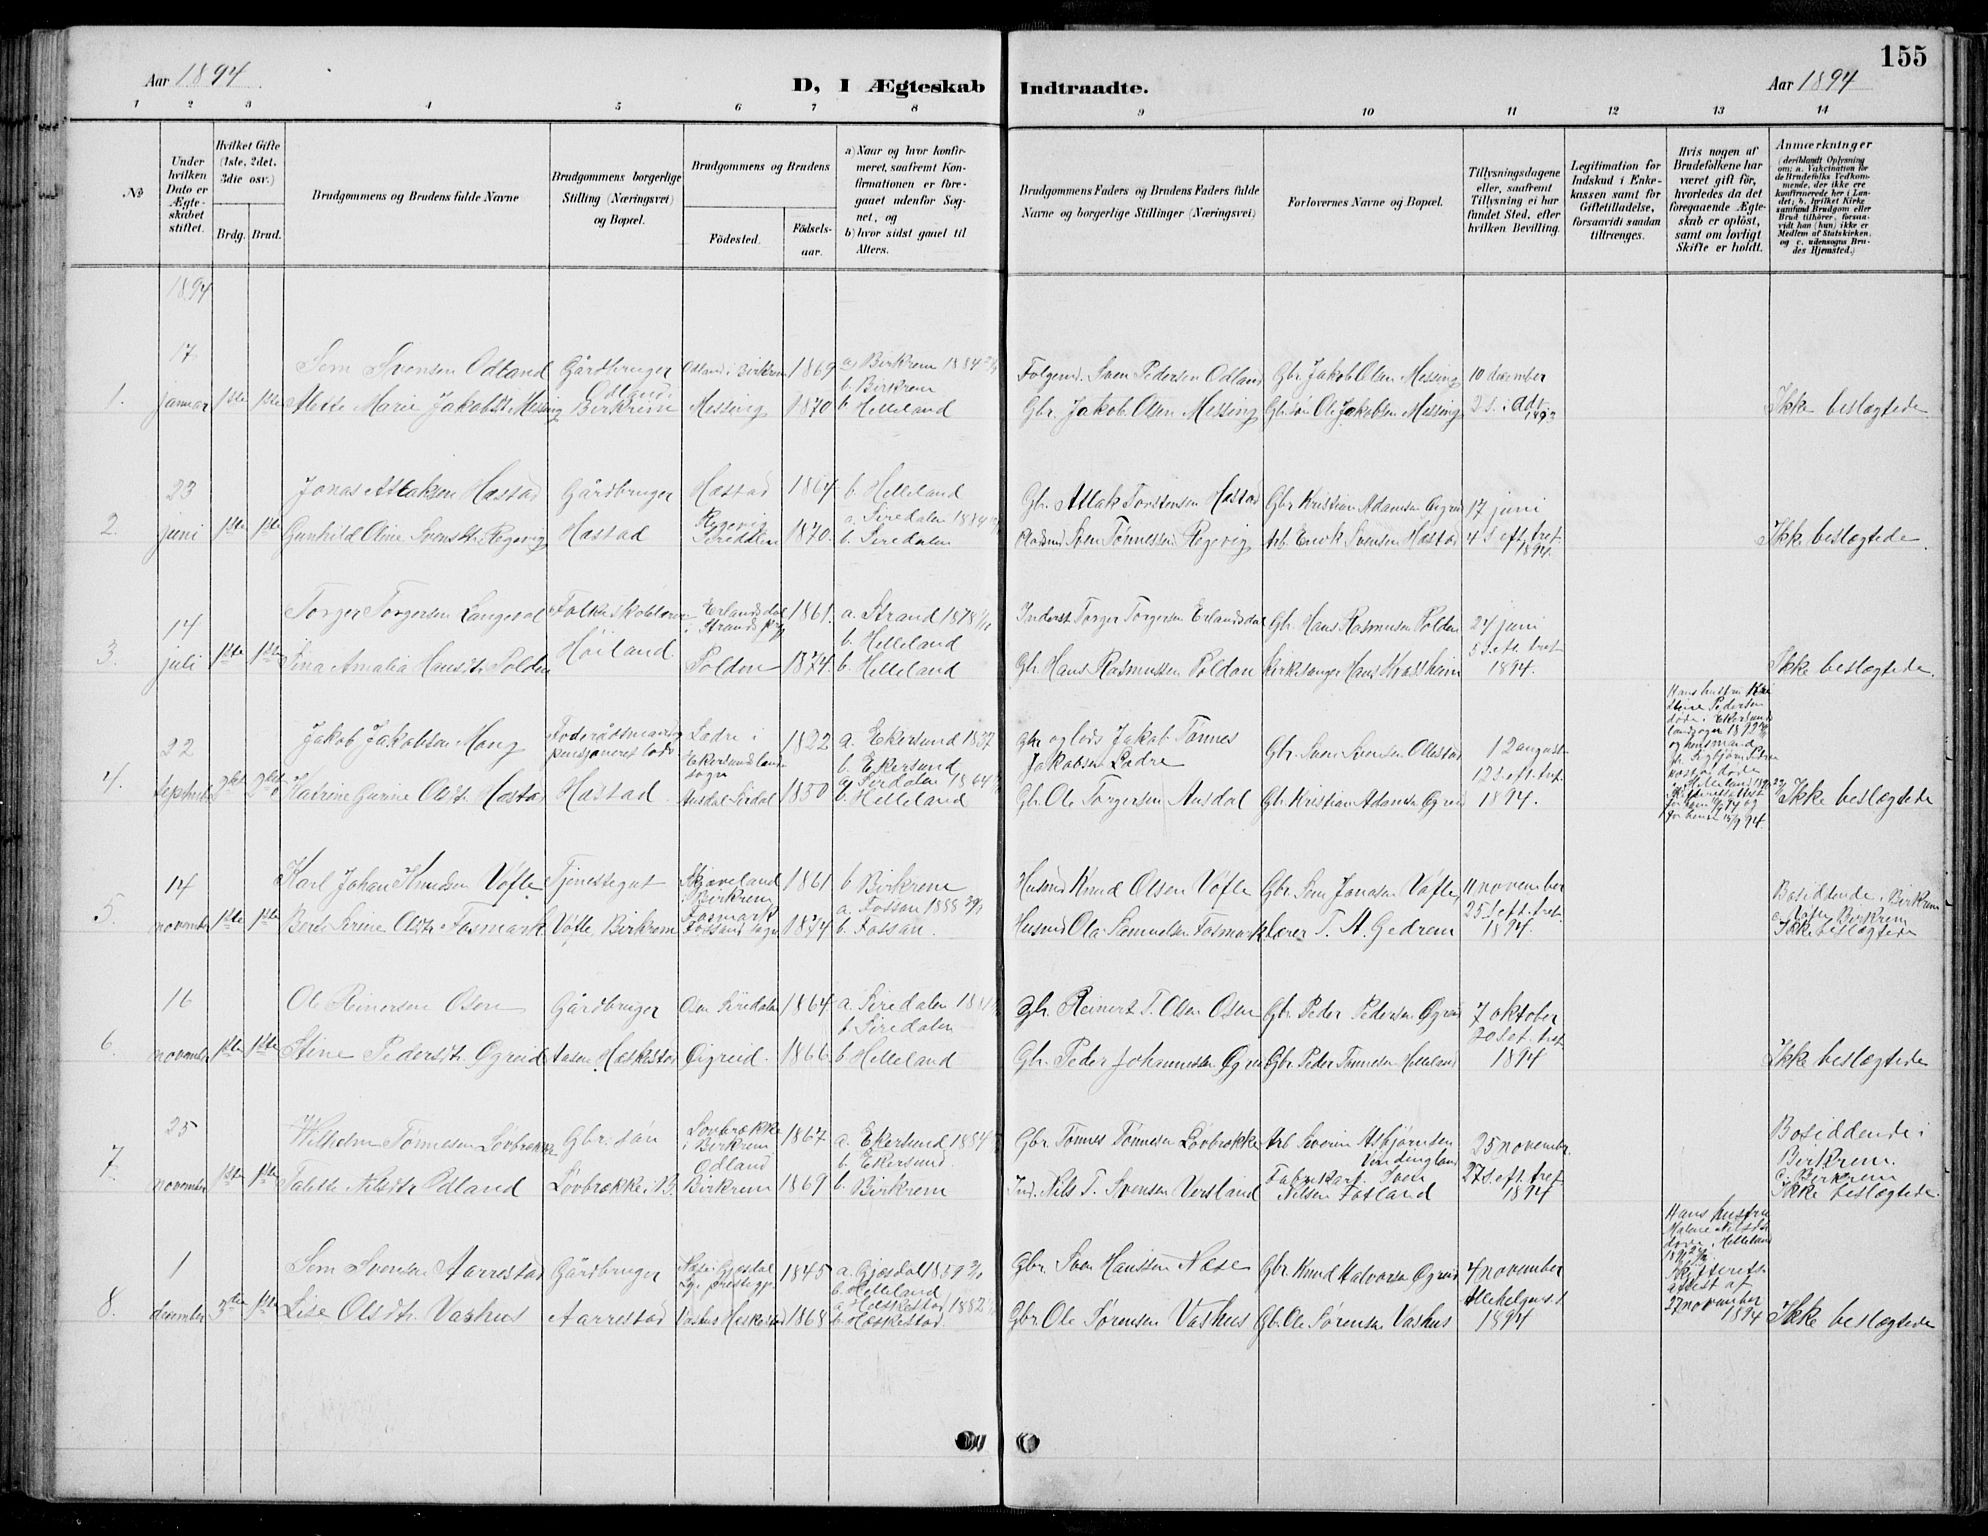 155
Aar 1894
D, I Ægteskab Indtraadte.
Aar 1894
1 2 3 4 5 6 7 8 9 10 11 12 13 14
№
Under hvilken Dato er Ægteskabet stiftet.
Hvilket Gifte (1ste, 2det, 3die osv.)
Brdg. Brud.
Brudgommens og Brudens fulde Navne
Brudgommens borgerlige Stilling (Næringsvei) og Bopæl.
Brudgommens og Brudens
Födested.
Födselsaar.
a) Naar og hvor konfirmeret, saafremt Konfirmationen er foregaaet udenfor Sognet, og
b) hvor sidst gaaet til Alters.
Brudgommens Faders og Brudens Faders fulde Navne og borgerlige Stillinger (Næringsvei)
Forlovernes Navne og Bopæl.
Tillysningsdagene eller, saafremt Tillysning ei har fundet Sted, efter hvilken Bevilling.
Legitimation for Indskud i Enkekassen samt for Giftetilladelse, forsaavidt saadan tiltrænges.
Hvis nogen af Brudefolkene har været gift för, hvorledes da det foregaaende Ægteskab er oplöst, samt om lovligt Skifte er holdt.
Anmærkninger
(deriblandt Oplysning om: a. Vakcination for de Brudefolks Vedkommende, der ikke ere konfirmerede her i Landet; b. hvilket Kirkesamfund Brudgom eller Brud tilhörer, forsaavidt han (hun) ikke er Medlem af Statskirken, og c. udensogns Brudes Hjemsted.)
1894
1. 17 januar 1ste 1ste
Sem Svensen Odland
Mette Marie Jakobsdt. Messing
Gårdbruger Odland, Birkrem
Odland i Birkrem 1869
Messing 1870
a) Birkrem 1884
b. Birkrem
b. Helleland
Folgemd. Sven Pedersen Odland
Gbr. Jakob Olsen Messing
Gbr. Jakob Olsen Messing
Gbr. søn Ole Jakobsen Messing
10 december
2 s. i Adv. 1893
Ikke beslægtede
2. 23 juni 1ste 1ste
Jonas Atlaksen Hæstad
Gunhild Oline Svensdt. Regevig
Gårdbruger
Hæstad
Hæstad 1864
Regevig Siredalen 1870.
b. Helleland
a. Siredalen
b. Siredalen
Gbr. Atlak Torstensen Hæstad
Sven Tønnessen Regevig
Gbr. Kristian Adamsen Øgreid
Arb. Enok Svensen Hæstad
17 juni
4 s. eft. tref. 1894.
Ikke beslægtede
3. 14 juli 1ste 1ste
Torger Torgersen Langevol
Sina Amalia Hansdt. Polden
Folkeskolelærer
Höiland
Erlandsdal i Strands 1861.
Polden 1874.
a. Strand 1878
b. Helleland
b. Helleland
Inderst Torger Torgersen Erlandsdal
Gbr. Hans Rasmussen Poldan
Gbr. Hans Rasmussen Polden
Kirkesanger Hans Krossheim
24 juni
5 s. eft. tref. 1894.
Ikke beslægtede
4. 22 September
Jakob Jakobsen Mong
Katrine Gurine Olsdt. Hæstad
Foderådsmand pensjoneret lods
Hæstad
Ladre i Ekersunds landsogn 1822
Ausdal Sirdal 1850
a. Ekersund 1837
b. Ekersund
a. Siredalen 1864
b. Helleland
Gbr. og lods Jakob Tønnes Jakobsen Ladre
Gbr. Ole Torgersen Ausdal
Gbr. Sven Svensen Ollestad
Gbr. Kristian Adamsen Øgreid
12 august
12 s. eft. tref. 1894.
Hans hustru
Pedersen døde i Ekersunds landsogn
Ikke beslægtede
5. 14 november 1ste 1ste
Karl Johan Knudsen Vøfle
Berte Serine Olsdt. Fosmark
Tjenestegut
Vøfle, Birkrem
Skjæveland Birkrem 1861
Fosmark Fossand sogn 1874
b. Birkrem
a. Fossan 1888
b. Fossan.
Husmd. Knud Olsen Vøfle
Husmd. Ola Samuelsen Fosmark
Gbr. Sem Jonasen Vøfle
Lærer T. A. Gedrem
11 november
25 s. eft. tref. 1894.
Bosiddende i Birkrem
c. Vøfle, Birkrem
Ikke beslægtede
6. 16 november 1ste 1ste
Ole Reinersen Osen
Stine Pedersdt. Øgreid
Gårdbruger
Osen Siredalen 1864
Øigreid. 1866
a. Siredalen
b. Siredalen
b. Helleland
Gbr. Reinert T. Olsen Osen
Gbr. Peder Johannesen Øgreid
Gbr. Peder Pedersen Øgreid
Gbr. Peder Tønnesen Helleland
7 oktober
20 s. et. tref. 1894
Ikke beslægtede
7. 25 november 1ste 1ste
Wilhelm Tønnesen Lovbrække
Talette Nilsdt. Odland
Gbr. søn
Løvbrække i B.
Lovbrække i Birkrem 1867
Odland Birkrem 1869
a. Ekersund 1884
b. Ekersund
b. Birkrem
Gbr. Tønnes Tønnesen Løvbrække
Ind. Nils T. Svensen Versland
Arb. Severin Asbjørnsen
Fabrikarb. Sven Nilsen Fotland
25 november.
27 s. eft. tref. 1894
Bosiddende i Birkrem.
c. Birkrem
Ikke beslægtede.
8. 1 december 3die 1ste
Sem Svensen Aarrestad
Lise Olsdt. Vashus
Gårdbruger
Aarrestad
Næse i Gjæsdal 1845
Vashus Heskestad 1868
a. Gjæsdal 1859
b. Helleland
a. Heskestad 1882
b. Heskestad
Gbr. Sven Hanssen Næse
Gbr. Ole Sørensen Vashus
Gbr. Knud Halvorsen Øgreid
Gbr. Ole Sørensen Vashus
4 november
Allehelgens d. 1894
Hans hustru Malene Nilsdt. døde i Helleland
Skifteretsattest af 27 november 1894
Ikke beslægtede